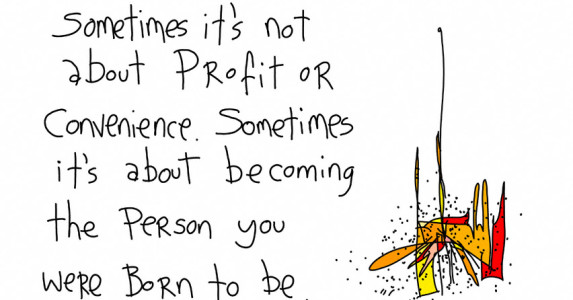 Sometimes it's not
about PRofit oR
Convenience. Sometimes
it's about becoming
the Person you
were BoRn to be.